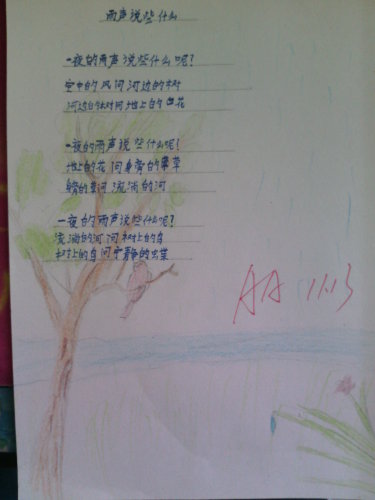 雨声说些什么
一夜的雨声说些什么呢?
空中的风问河边的树
河边的树问地上的花
一夜的雨声说些什么呢!
地上的花问身旁的草
身旁的草问流淌的河
一夜的雨声说些什么呢?
流淌的河问树上的鸟
树上的鸟问宁静的
AA 11.13